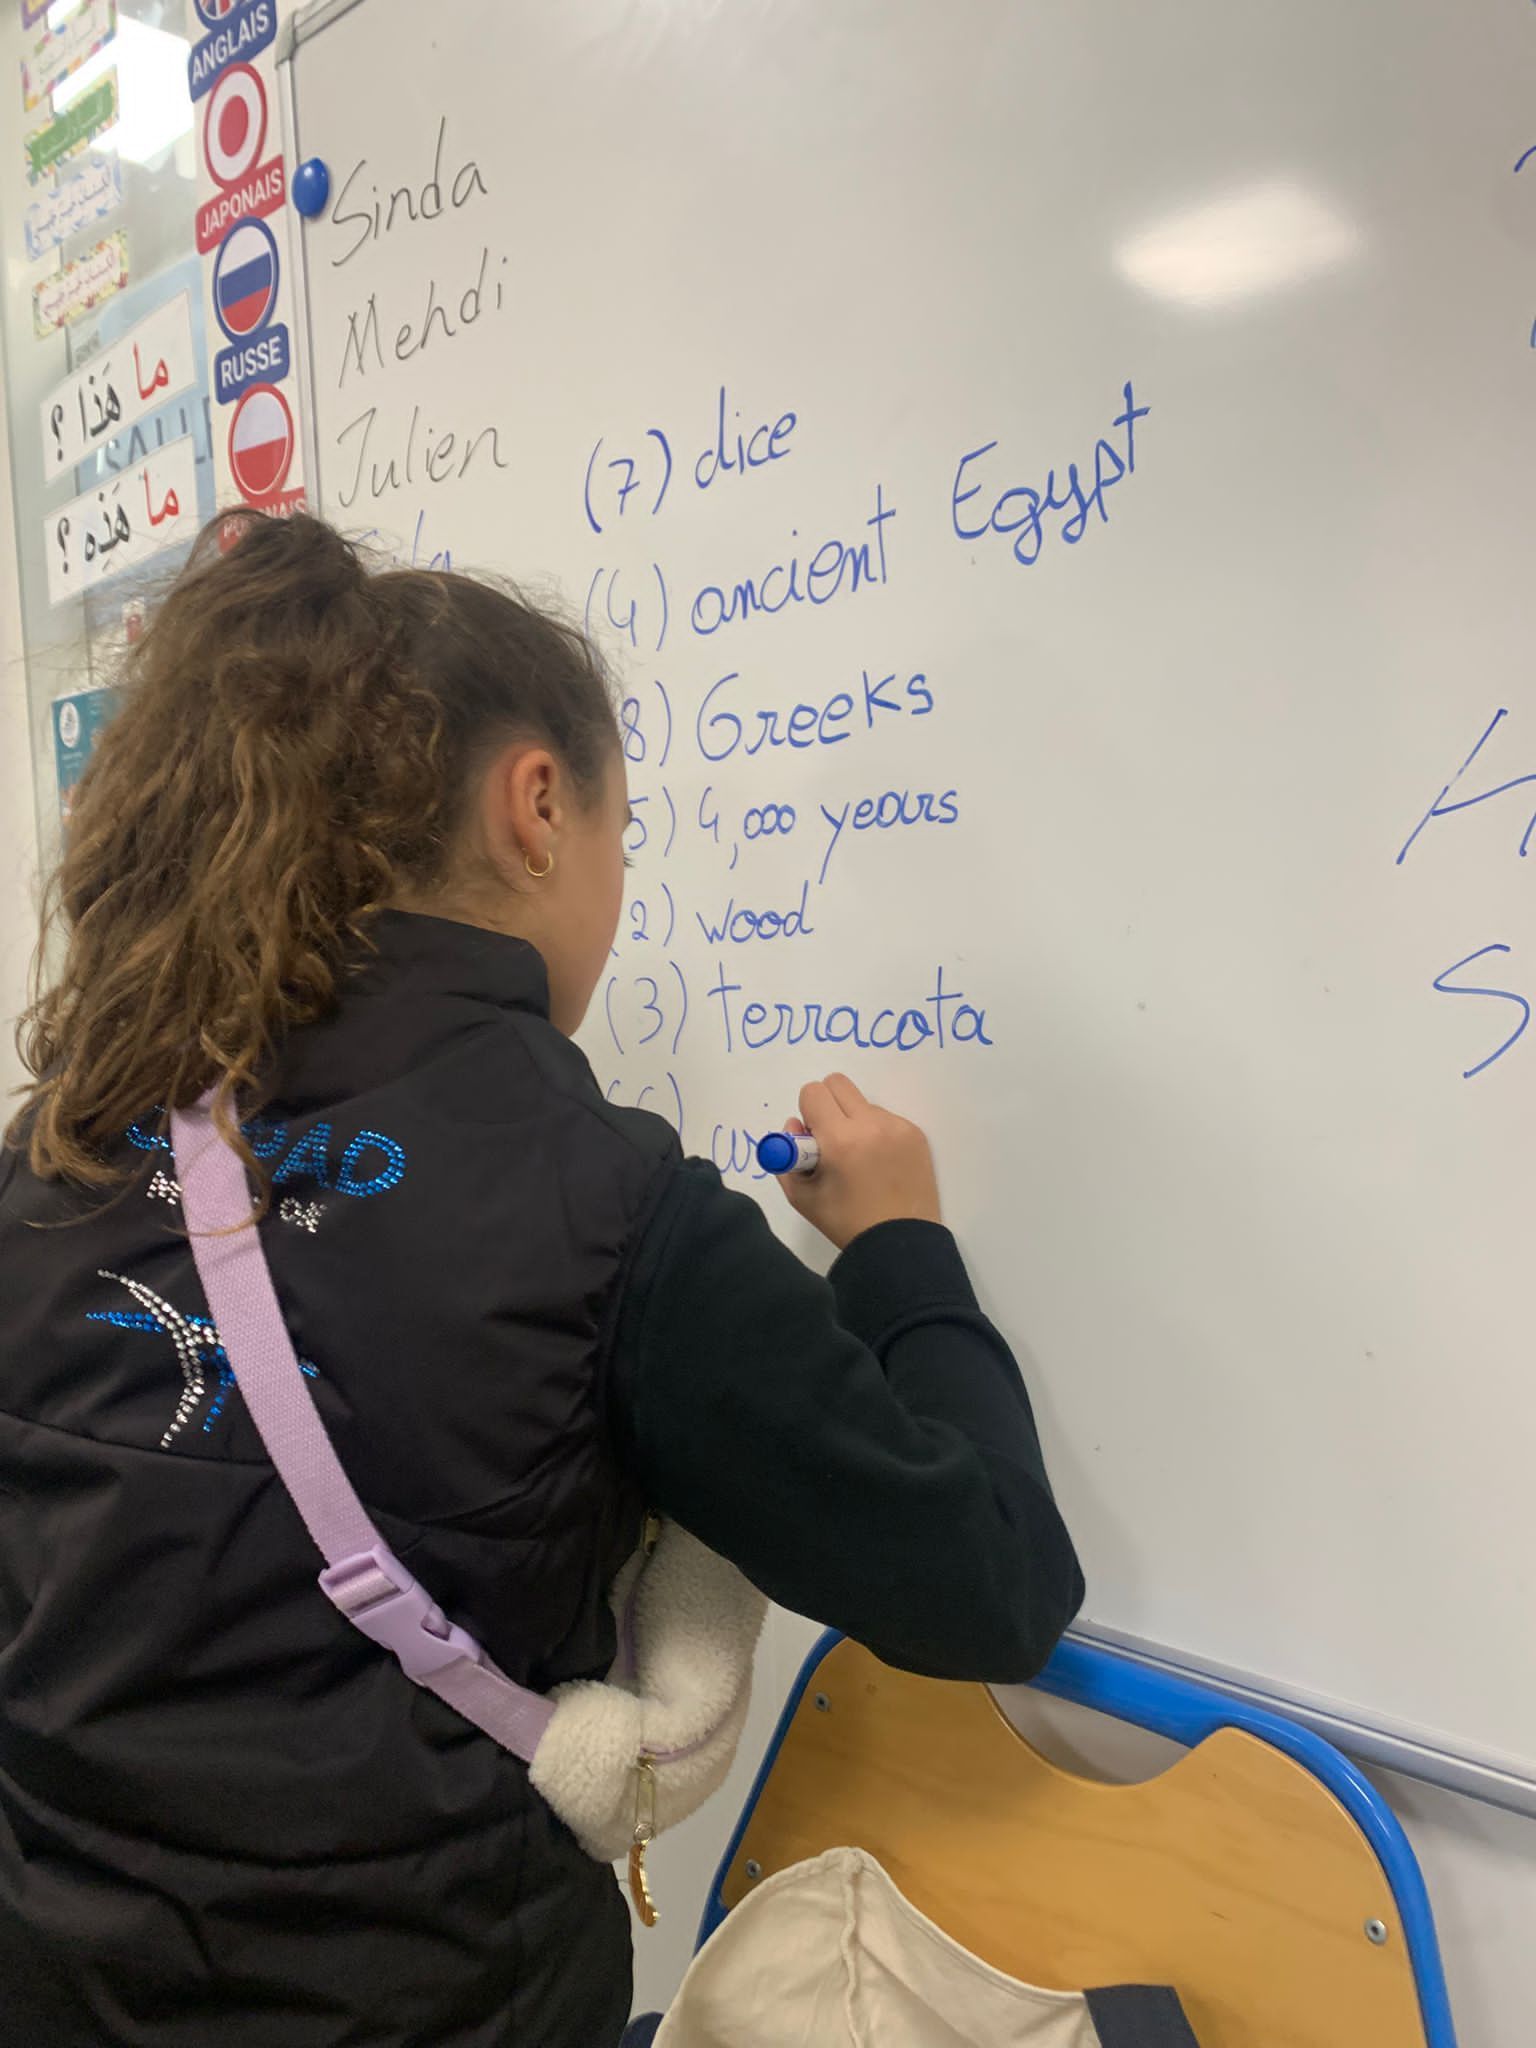 ANGLAIS
JAPONAIS
RUSSE
ما هَذا ؟
ما هَذِه ؟
Sinda
Mehdi
Julien
(7) dice
(4) ancient Egypt
8) Greeks
5) 4,000 years
2) wood
(3) terracota